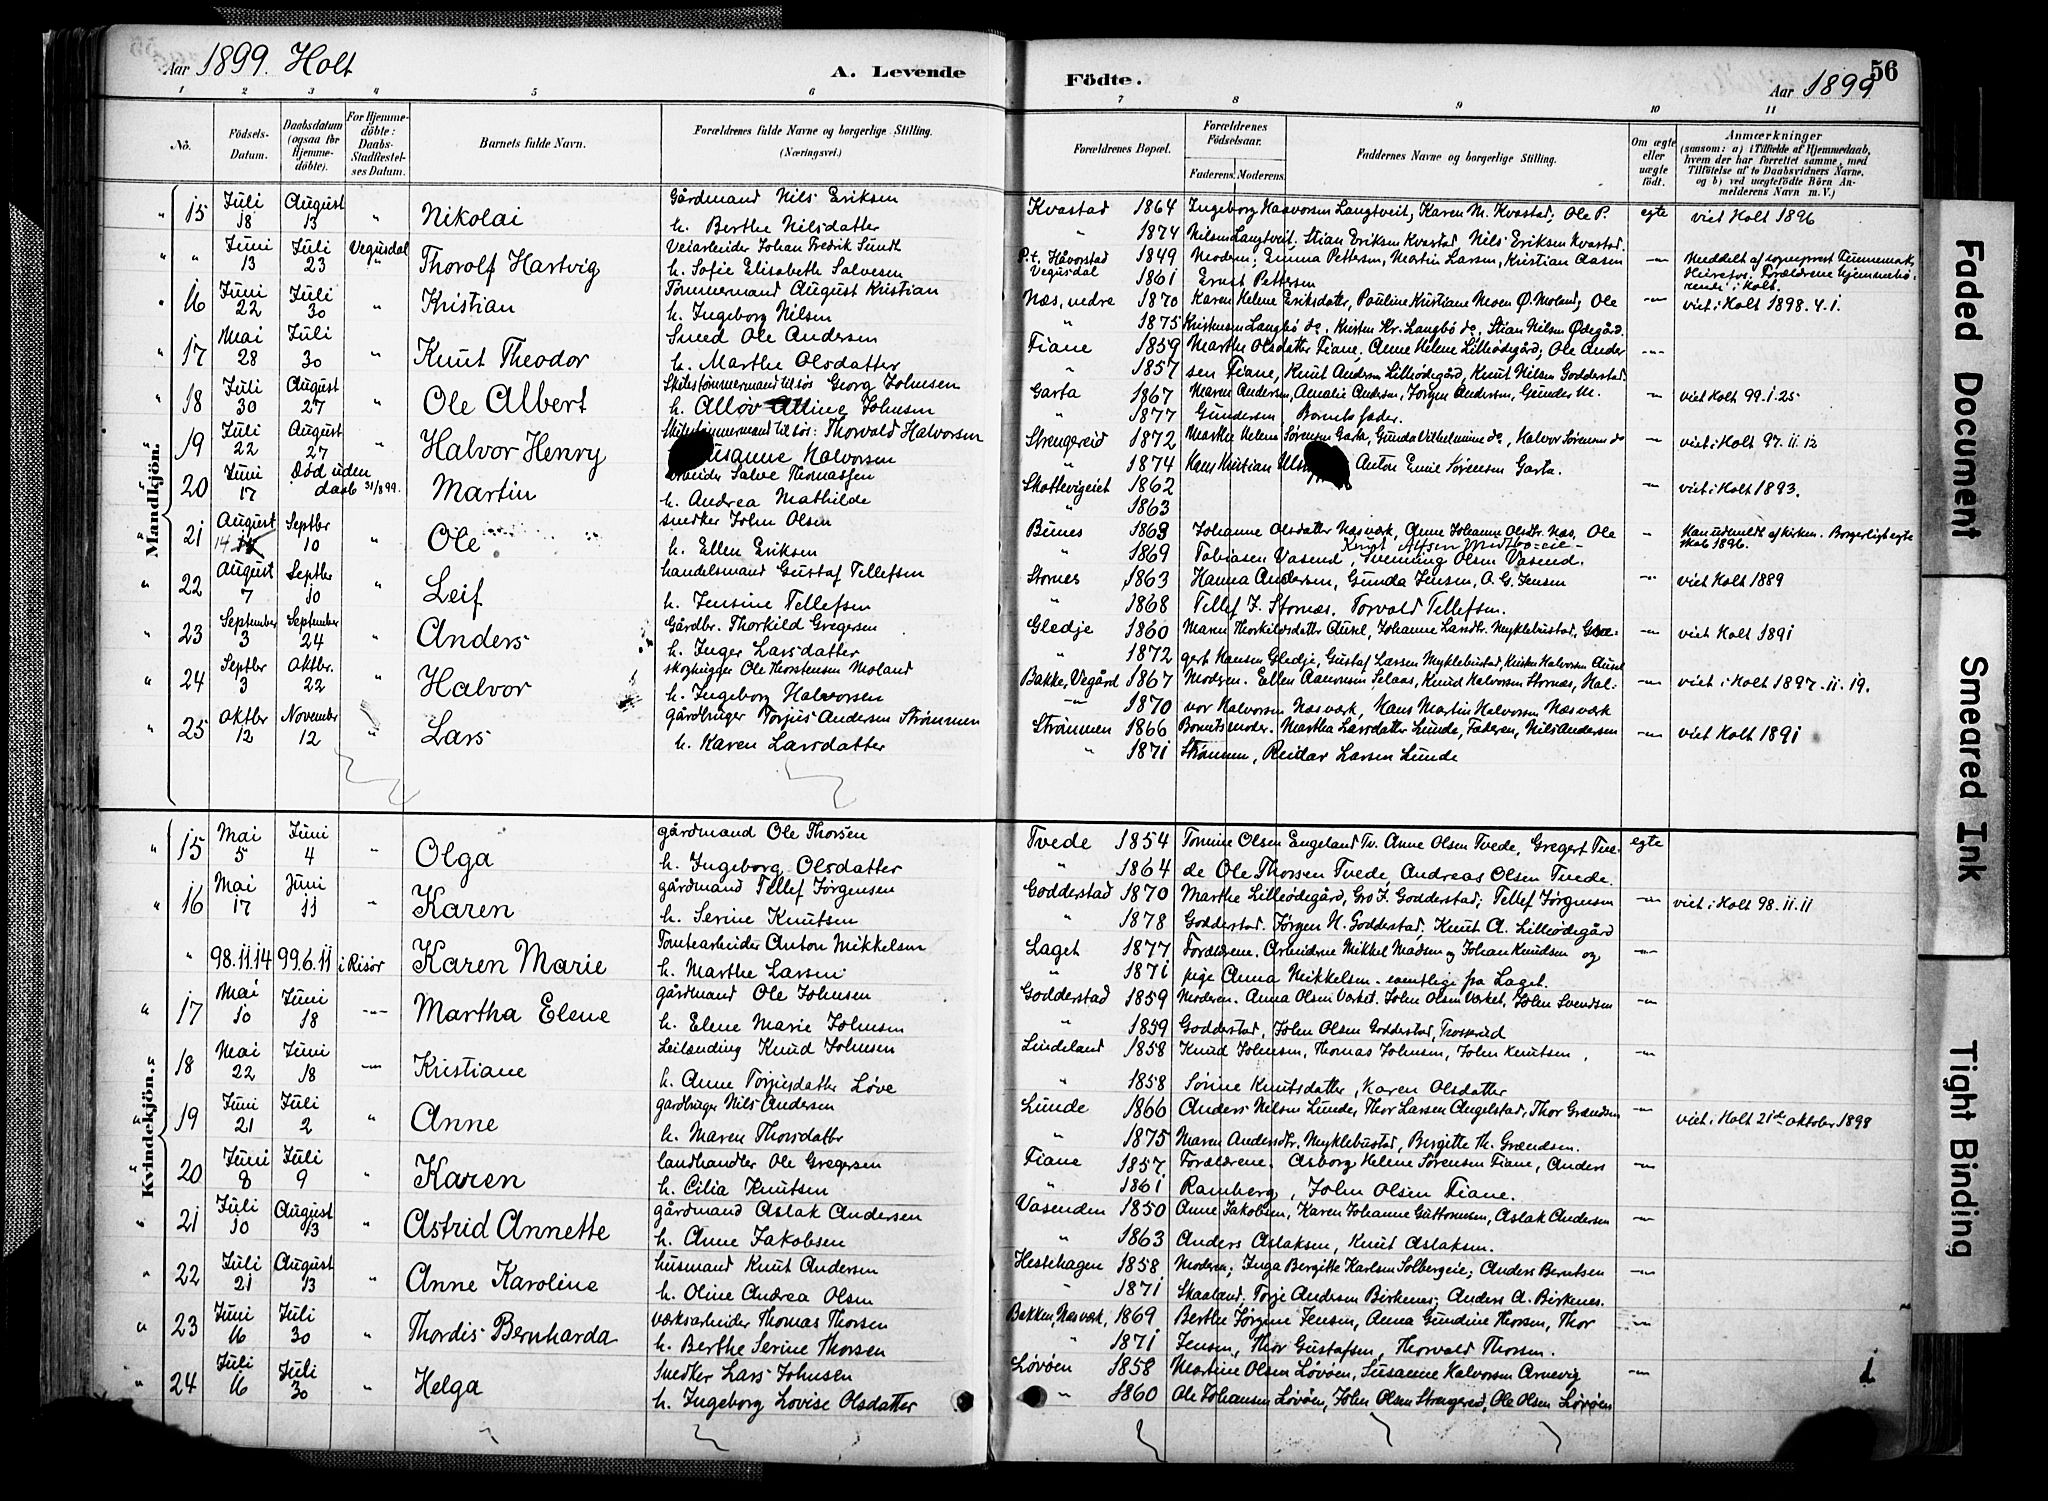 Aar 1899. Holt A. Levende Födte. Aar 1899 56
1 2 3 4 5 6 7 8 9 10 11
No. Födsels-Datum. Daabsdatum (ogsaa for Hjemme-döbte). For Hjemme-döbte: Daabs-Stadfæstel-ses Datum. Barnets fulde Navn. Forældrenes fulde Navne og borgerlige Stilling. (Næringsvei.) Forældrenes Bopæl. Forældrenes Födselsaar. Faderens. Moderens. Faddernes Navne og borgerlige Stilling. Om ægte eller uægte födt. Anmærkninger (saasom: a) i Tilfælde af Hjemmedaab, hvem der har forrettet samme, med Tilföielse af to Daabsvidners Navne, og b) ved uægtefödte Börn An-melderens Navn m. V.)
Mandkjön.
15 Juli 18 August 13 " Nikolai Gårdmand Nils Eriksen Kvastad 1864 Ingeborg Haavorsen Langtveit, Karen M. Kvastad, Ole P. egte viet Holt 1896
h. Berthe Nilsdatter " 1874 Nilsen Langtveit. Stian Eriksen Kvastad Nils Eriksen Kvastad.
" Juni 13 Juli 23 Vegusdal " Thorolf Hartvig Veiarbeider Johan Fredrik Sundt P.t. Håvorstad 1849 Moderen; Emma Pettersen, Martin Larsen, Kristian Aasen Meddelt af sogneprest
h. Sofie Elisabeth Salvesen Vegusdal 1861 Ernst Pettersen Forældrene hjemmehö-rende i Holt.
16 Juni 22 Juli 30 " Kristian Tömmermand August Kristian Næs, nedre 1870 Karen Helene Eriksdatter, Pauline Kristiane Moen Ø. Moland; Ole viet i Holt 1898.4.1.
h. Ingeborg Nilsen " 1875 Kristensen Langbö do, Kristen Kr. Langbö do, Stian Nilsen Ødegård.
17 Mai 28 Juli 30 " Knut Theodor Smed Ole Andersen Fiane 1859 Marthe Olsdatter Fiane, Anne Helene Lilleödegård; Ole Ander
h. Marthe Olsdatter " 1857 sen Fiane, Knut Andersen Lilleödegård, Knut Nilsen Godderstad.
18 Juli 30 August 27 " Ole Albert Skibstømmermand til søs Georg Johnsen Garta 1867 Maren Andersen, Amalie Andersen, Jørgen Andersen, Gunder M. viet Holt 99.1.25
h. Alløv Johnsen " 1877 Gundersen Barnets fader.
19 Juli 22 August 27 " Halvor Henry Skibstømmermand til søs: Thorvald Halvorsen Strengereid 1872 Marthe Helene Sørensen Garta, Gunda Vilhelmine do, Halvor Sørensen do viet i Holt 97.11.12
Susanne Halvorsen " 1874 Hans Kristian Anton Emil Sørensen Garta.
20 Juni 17 Död uden daab 31/8 99. Martin Arbeider Salve Thomassen 1862 viet i Holt 1893.
h. Andrea Mathilde " 1863
21 August 14 Septbr 10 " Ole snedker John Olsen Bunes 1863 Johanne Olsdatter Næsværk, Anne Johanne Olsdtr. Næs, Ole Han udmeldt af kirken. Borgerligt egte skab 1896.
h. Ellen Eriksen " 1869 Tobiasen Vasend, Svenning Olsen Vasend.
22 August 7 Septbr 10 " Leif handelsmand Gustaf Tellefsen Stornes 1863 Hanna Andersen, Gunda Jensen, O. G. Jensen viet Holt 1889
h. Jensine Tellefsen " 1868 Tellef J. Stornæs. Torvald Tellefsen.
23 September 3 September 24 " Anders Gårdbr. Thorkild Gregersen Gledje 1860 Maren Thorkildsdatter Ausel, Johanne Larsdtr. Myklebustad, Gre- viet Holt 1891
h. Inger Larsdatter " 1872 gert Hansen Gledje, Gustaf Larsen Myklebustad, Kristen Halvorsen Ausel
24 Septbr 3 Oktbr. 22 " Halvor skoghugger Ole Thorstensen Moland Bakke, Vegård 1867 Moderen. Ellen Aanonsen Selaas, Knud Halvorsen Stornæs, Hal- viet i Holt 1897.11.19.
h. Ingeborg Halvorsen " 1870 vor Halvorsen Næsværk, Hans Martin Halvorsen Næsværk
25 Oktbr 12 November 12 " Lars gårdbruger Torjus Andersen Strömmen Strömmen 1866 Barnets moder. Martha Larsdatter Lunde, Faderen, Nils Andersen viet Holt 1891
h. Karen Larsdatter " 1871 Strömmen, Reidar Larsen Lunde
Kvindekjön.
15 Mai 5 Juni 4 " Olga gårdmand Ole Thorsen Tvede 1854 Tomine Olsen Engeland Tv. Anne Olsen Tvede, Gregert Tve- egte
h. Ingeborg Olsdatter " 1864 de Ole Thorsen Tvede, Andreas Olsen Tvede.
16 Mai 17 Juni 11 " Karen gårdmand Tellef Jörgensen Godderstad 1870 Marthe Lilleödegård, Gro J. Godderstad; Tellef Jörgensen viet i Holt 98.11.11
h. Serine Knutsen " 1878 Godderstad. Jørgen H. Godderstad, Knut A. Lilleödegård
" 98.11.14 99.6.11 i Risör Karen Marie Tomtearbeider Anton Mikkelsen Laget 1877 Forældrene. Arbeiderne Mikkel Madsen og Johan Knudsen og
h. Marthe Larsen " 1871 pige Anna Mikkelsen. samtlige fra Laget.
17 Mai 10 Juni 18 Martha Elene gårdmand Ole Johnsen Godderstad 1859 Moderen. Anna Olsen Verket. John Olsen Verket, John Svendsen
h. Elene Marie Johnsen " 1859 Godderstad, John Olsen Godderstad,
18 Mai 22 Juni 18 Kristiane Leilending Knud Johnsen Lindeland 1858 Knud Johnsen, Thomas Johnsen, John Knutsen,
h. Anne Torjusdatter Løve " 1858 Sørine Knutsdatter, Karen Olsdatter
19 Juni 21 Juli 2 " Anne gardbruger Nils Andersen Lunde 1866 Anders Nilsen Lunde, Thor Larsen Angelstad, Thor Grændsen viet i Holt 21de oktober 1898
h. Maren Thorsdatter " 1875 Maren Andersdtr. Myklebustad, Bergitte Th. Grændsen.
20 Juni 8 Juli 9 " Karen landhandler Ole Gregersen Fiane 1857 Forældrene. Asborg Helene Sørensen Fiane, Anders
h. Cilia Knutsen " 1861 Ramberg, John Olsen Fiane.
21 Juli 10 August 13 " Astrid Annette gårdmand Aslak Andersen Vasenden 1850 Anne Jakobsen, Karen Johanne Guttormsen, Aslak Andersen
h. Anne Jakobsen " 1863 Anders Aslaksen, Knut Aslaksen.
22 Juli 21 August 13 " Anne Karoline husmand Knut Andersen Hestehagen 1858 Moderen; Inga Bergitte Karlsen Solbergeie; Anders Berntsen
h. Oline Andrea Olsen " 1871 Skaaland. Torje Andersen Birkenes; Anders A. Birkenes.
23 Juni 16 Juli 30 " Thordis Bernharda værksarbeider Thomas Thorsen Bakken, Næsværk, 1869 Berthe Jørgine Jensen, Anna Gundine Thorsen, Thor
h. Berthe Serine Thorsen " 1871 Jensen, Thor Gustafsen, Thorvald Thorsen.
24 Juli 16 Juli 30 " Helga Snedker Lars Johnsen Løvøen 1858 Martine Olsen Løvøen, Susanne Halvorsen Arnevig
h. Ingeborg Lovise Olsdatter " 1860 Ole Johansen Løvøen, John Olsen Strengereid, Ole Olsen Løvøen
Faded Document
Smeared Ink
Tight Binding